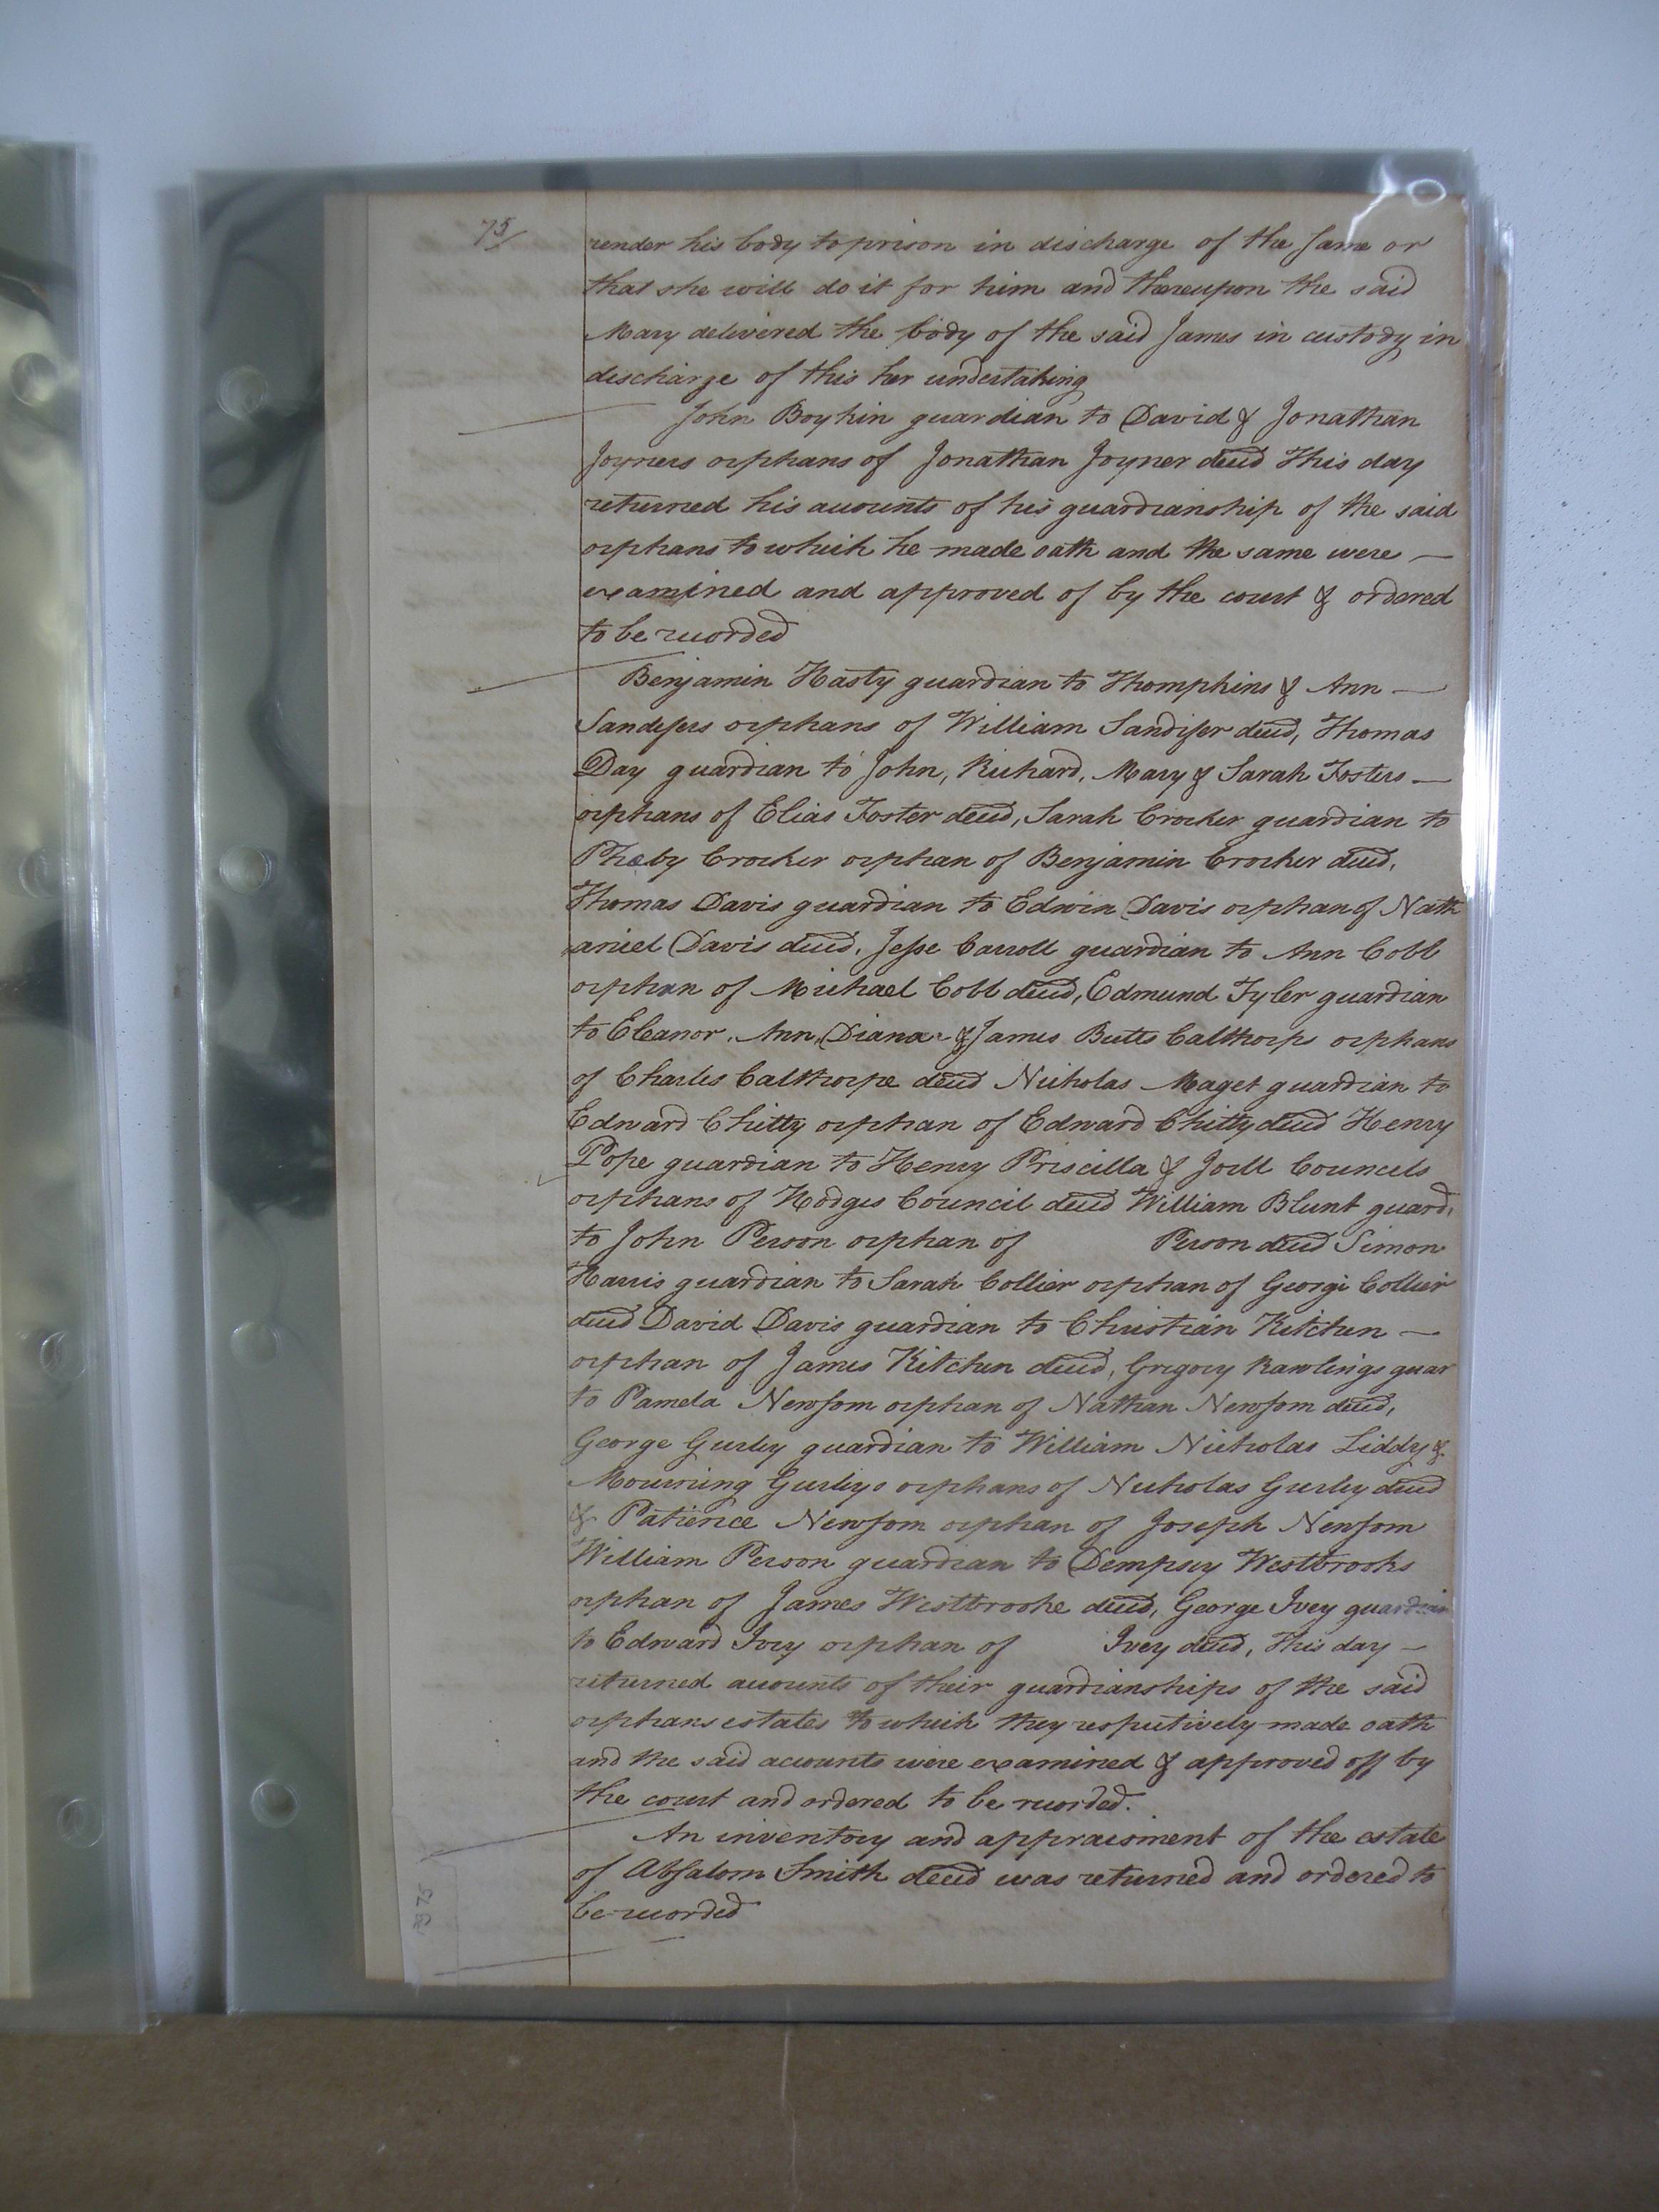 75/
render his body to prison in discharge of the same or
that she will do it for him and thereupon the said
Mary delivered the body of the said James in custody in
discharge of this her undertaking
John Boykin guardian to David & Jonathan
Joyners orphans of Jonathan Joyner decd This day
returned his accounts of his guardianship of the said
orphans to which he made oath and the same were —
examined and approved of by the court & ordered
to be recorded
Benjamin Hasty guardian to Thompkins & Ann —
Sandifers orphans of William Sandifer decd, Thomas
Day guardian to John, Richard, Mary & Sarah Fosters —
orphans of Elias Foster decd, Sarah Crocker guardian to
Phœby Crocker orphan of Benjamin Crocker decd,
Thomas Davis guardian to Edwin Davis orphan of Nath
aniel Davis decd, Jesse Carroll guardian to Ann Cobb
orphan of Michael Cobb decd, Edmund Tyler guardian
to Eleanor, Ann, Diana & James Butts Calthorps orphans
of Charles Calthorpe decd Nicholas Maget guardian to
Edward Chitty orphan of Edward Chitty decd Henry
Pope guardian to Henry Priscilla & Joell Councels
orphans of Hodges Council decd William Blunt guard,
to John Person orphan of Person decd Simon
Harris guardian to Sarah Collier orphan of George Collier
decd David Davis guardian to Christian Kitchen —
orphan of James Kitchen decd, Gregory Rawlings guar
to Pamela Newsom orphan of Nathan Newsom decd,
George Gurley guardian to William Nicholas Liddy &
Mourning Gurleys orphans of Nicholas Gurley decd
& Patience Newsom orphan of Joseph Newsom
William Person guardian to Dempsey Westbrooks
orphan of James Westbrooke decd, George Ivey guardian
to Edward Ivey orphan of Ivey decd, This day —
returned accounts of their guardianships of the said
orphans estates to which they respectively made oath
and the said accounts were examined & approved off by
the court and ordered to be recorded.
An inventory and appraisment of the estate
of Absalom Smith decd was returned and ordered to
be recorded
375